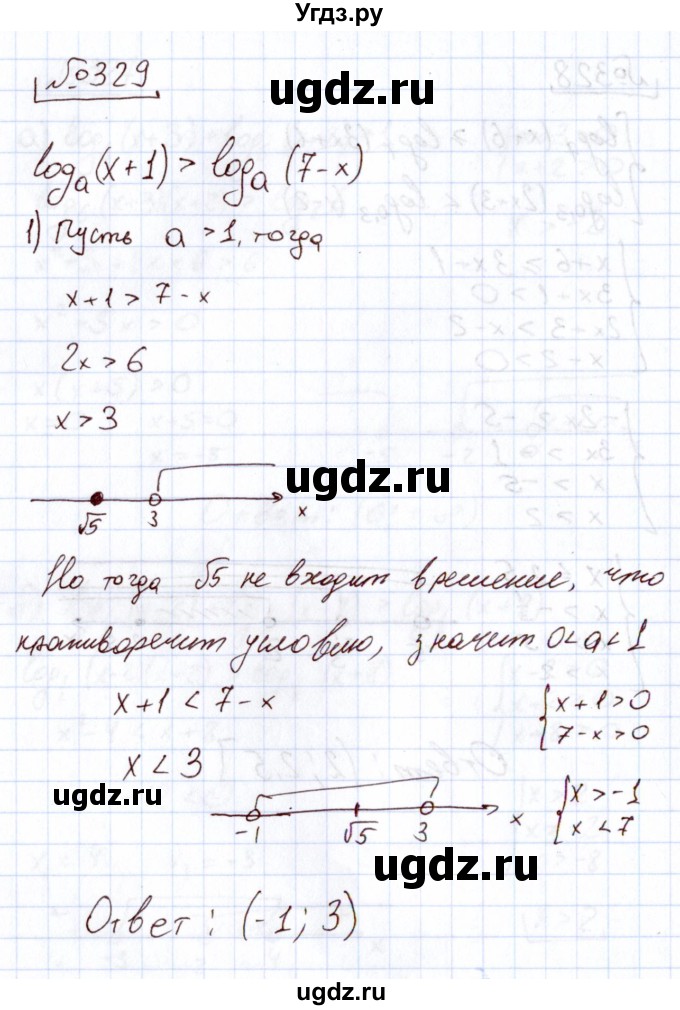 Угдз.ру
№329
ugdz.ru
logₐ(x+1) > logₐ(7-x)
1) Пусть a >1, тогда
x+1 > 7-x
2x > 6
x > 3
ugdz.ru
√5 3 x
Но тогда √5 не входит в решение, что
противоречит условию, значит 0<a<1
x+1 < 7-x
{x+1>0
7-x>0
x < 3
ugdz.ru
-1 √5 3 x
{x>-1
x<7
ugdz.ru
Ответ: (-1; 3)
ugdz.ru